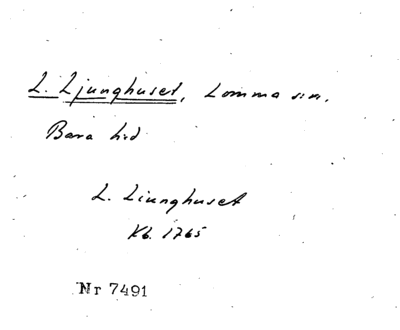 L. Ljunghuset, Lomma sn.
Bara hd
L. Liunghuset
Kb. 1765
Nr 7491